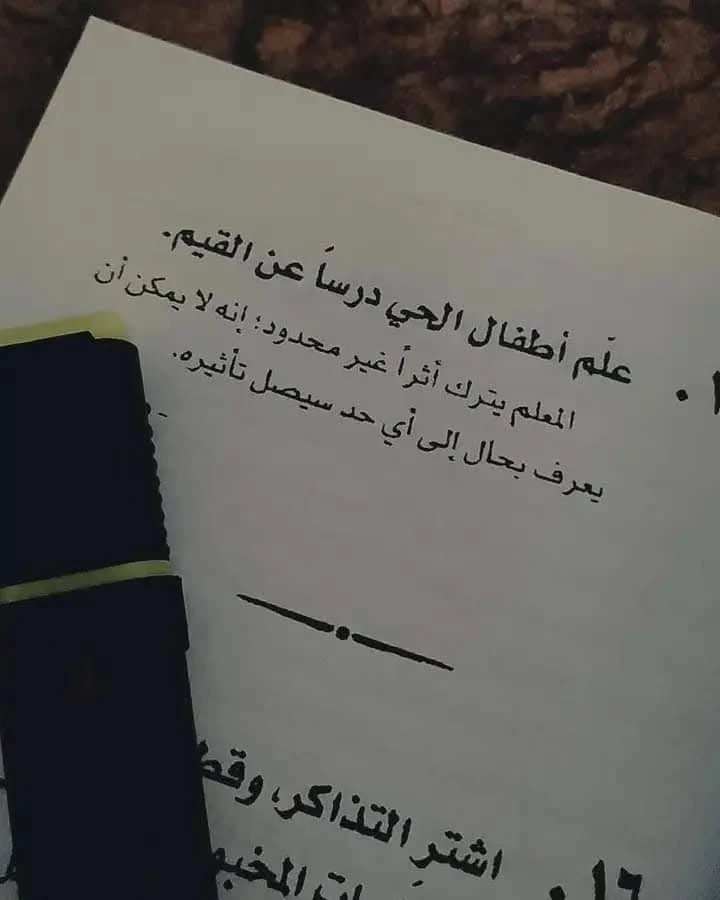 علّم أطفال الحي درساً عن القيم.
المعلم يترك أثراً غير محدود؛ إنه لا يمكن أن
يعرف بحال إلى أي حد سيصل تأثيره.
١٦. اشترِ التذاكر، وقط